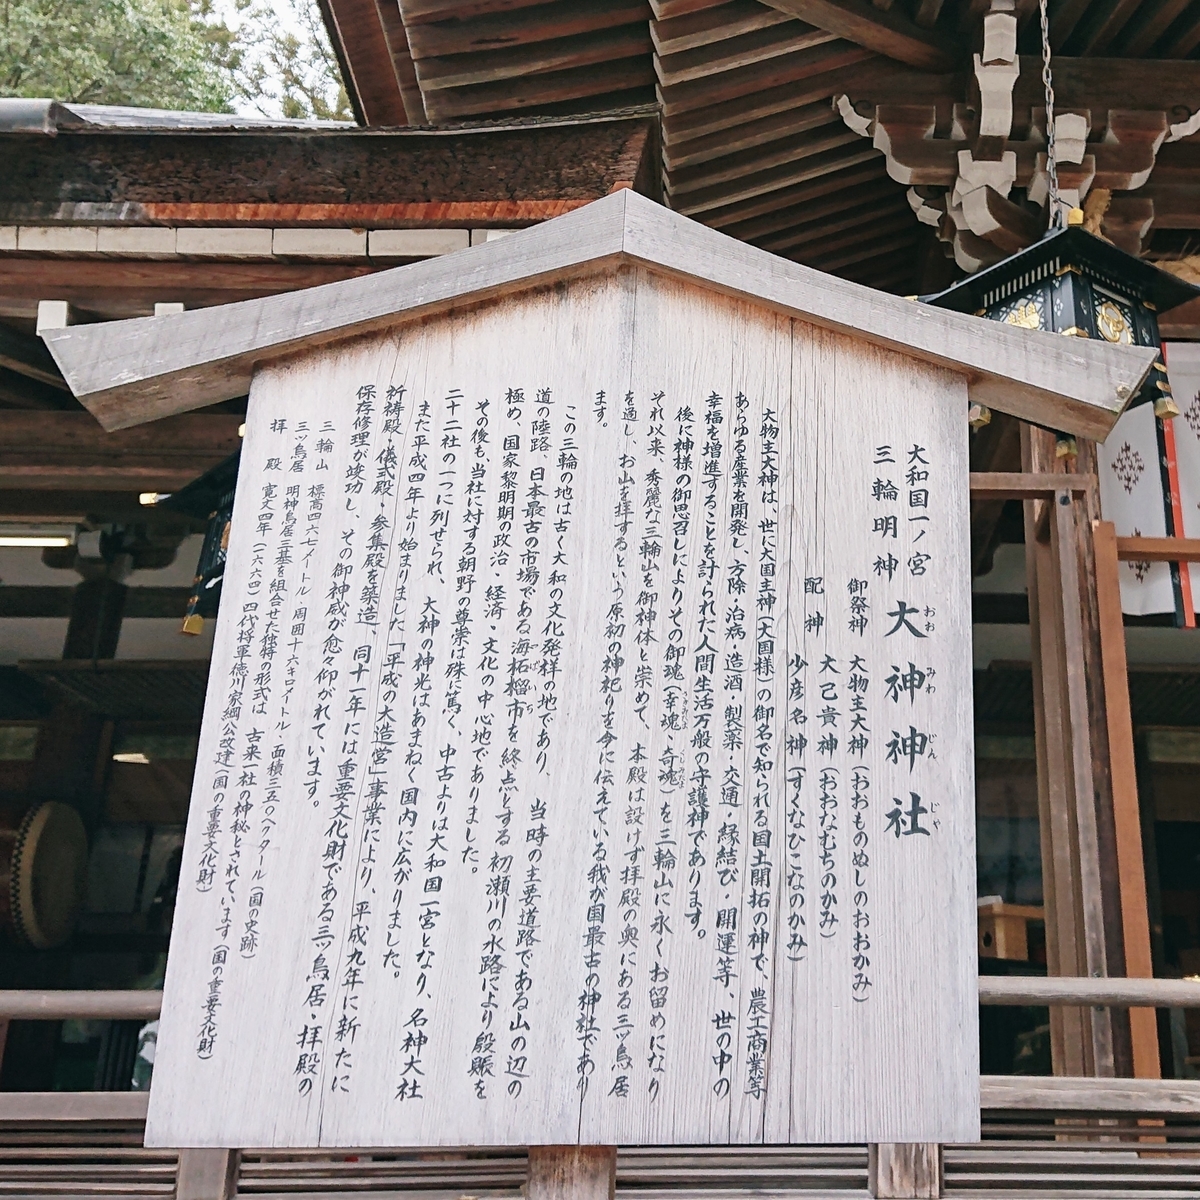 大和国一ノ宮
三輪明神
大神神社
おお みわ じん じゃ
御祭神 大物主大神(おおものぬしのおおかみ)
大己貴神(おおなむちのかみ)
配神 少彦名神(すくなひこなのかみ)
大物主大神は、世に大国主神(大国様)の御名で知られる国土開拓の神で、農工商業等
あらゆる産業を開発し、方除・治病・造酒・製薬・交通・縁結び・開運等、世の中の
幸福を増進することを計られた人間生活万般の守護神であります。
後に神様の御思召しによりその御魂(幸魂 奇魂)を三輪山に永くお留めになり
それ以来、秀麗な三輪山を御神体と崇めて、本殿は設けず拝殿の奥にある三ッ鳥居
を通し、お山を拝するという原初の神祀りを今に伝えている我が国最古の神社であり
ます。
この三輪の地は古く大和の文化発祥の地であり、当時の主要道路である山の辺の
道の陸路 日本最古の市場である海柘榴市を終点とする初瀬川の水路により殷賑を
極め、国家黎明期の政治・経済・文化の中心地でありました。
その後も、当社に対する朝野の尊崇は殊に篤く、中古よりは大和国一宮となり、名神大社
二十二社の一つに列せられ、大神の神光はあまねく国内に広がりました。
また平成四年より始まりました「平成の大造営」事業により、平成九年に新たに
祈祷殿・儀式殿・参集殿を築造、同十一年には重要文化財である三ッ鳥居・拝殿の
保存修理が竣功し、その御神威が愈々仰がれています。
三輪山 標高四六七メートル・周囲十六キロメートル・面積三五〇ヘクタール(国の史跡)
三ッ鳥居 明神鳥居三基を組合せた独特の形式は 古来一社の神秘とされています(国の重要文化財)
拝殿 寛文四年(一六六四)四代将軍徳川家綱公改建(国の重要文化財)